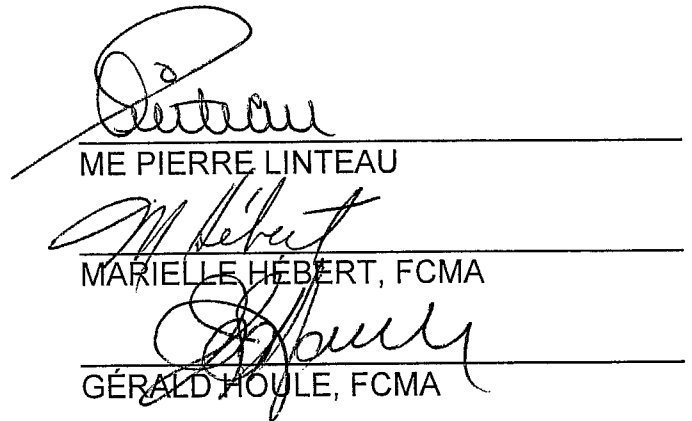 Linteau
ME PIERRE LINTEAU
M Hébert
MARIELLE HÉBERT, FCMA
Houle
GÉRALD HOULE, FCMA